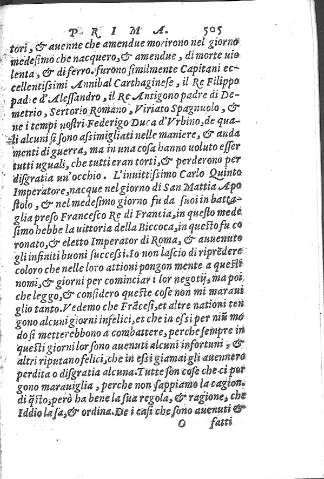 PRIMA. 505
tori, & auenne che amendue morirono nel giorno
medesimo che nacquero, & amendue, di morte uio
lenta, & di ferro. furono similmente Capitani ec-
cellentissimi Annibal Carthaginese, il Re Filippo
padre d'Alessandro, il Re Antigono padre di De-
metrio, Sertorio Romano, Viriato Spagnuolo, &
ne i tempi nostri Federigo Duca d'Vrbino, de qua-
li alcuni si sono assimigliati nelle maniere, & anda
menti di guerra, ma in una cosa hanno uoluto esser
tutti uguali, che tutti eran torti, & perderono per
disgratia un'occhio. L'inuittissimo Carlo Quinto
Imperatore, nacque nel giorno di San Mattia Apo
stolo, & nel medesimo giorno fu da suoi in batta-
glia preso Francesco Re di Francia, in questo mede
simo hebbe la uittoria della Biccoca, in questo fu co
ronato, & eletto Imperator di Roma, & auuenuto
gli infiniti buoni successi. Io non lascio di riprēdere
coloro che nelle loro attioni pongon mente a questi
nomi, & giorni per cominciar i lor negotij, ma poi
che leggo, & considero queste cose non mi maraui
glio tanto. Vedemo che Frãcesi, et altre nationi ten
gono alcuni giorni infelici, et che in essi per niũ mo
do si metterebbono a combattere, perche sempre in
questi giorni lor sono auenuti alcuni infortuni, &
altri riputano felici, che in essi giamai gli auennero
perdita o disgratia alcuna. Tutte son cose che ci por
gono marauiglia, perche non sappiamo la cagion.
di q̃sto, però ha bene la sua regola, & ragione, che
Iddio la sa, & ordina. De i casi che sono auenuti &
O fatti